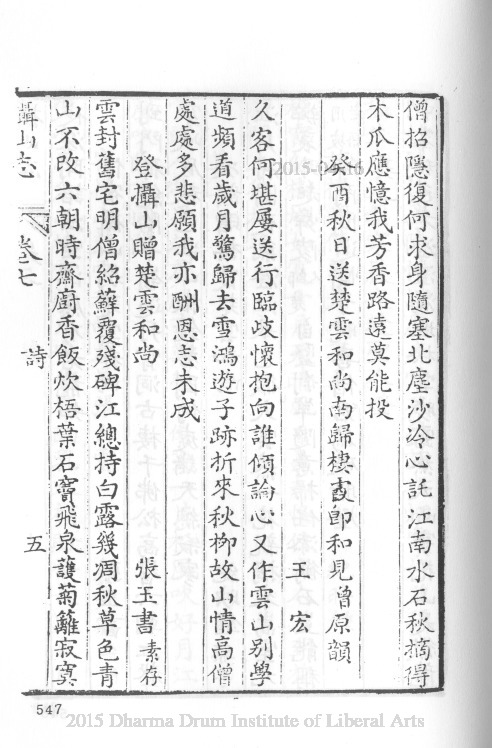 僧招隱復何求身隨塞北塵沙冷心託江南水石秋摘得
木瓜應憶我芳香路遠莫能投
癸酉秋日送楚雲和尚南歸棲霞即和見曾原韻
王宏
久客何堪屢送行臨歧懷抱向誰傾論心又作雲山別學
道頻看歲月驚歸去雪鴻遊子跡折來秋柳故山情高僧
處處多悲願我亦酬恩志未成
登攝山贈楚雲和尚 張玉書素存
雲封舊宅明僧紹蘚覆殘碑江總持白露幾凋秋草色青
山不改六朝時齋廚香飯炊梧葉石竇飛泉護菊籬寂寞
攝山志 卷七 詩 五
547
2015 Dharma Drum Institute of Liberal Arts